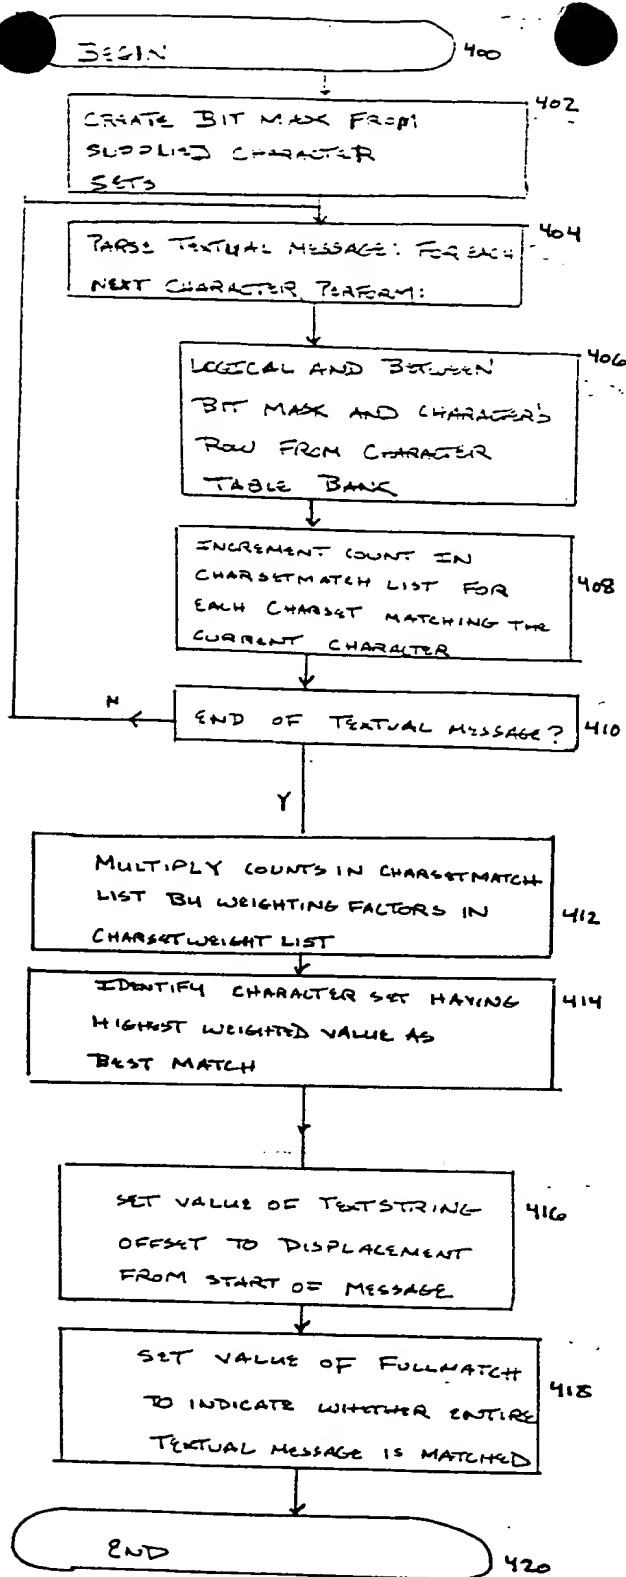 BEGIN
400
402
CREATE BIT MASK FROM
SUPPLIED CHARACTER
SETS
404
PARSE TEXTUAL MESSAGE: FOR EACH
NEXT CHARACTER PERFORM:
406
LOGICAL AND BETWEEN
BIT MASK AND CHARACTER'S
ROW FROM CHARACTER
TABLE BANK
INCREMENT COUNT IN
CHARSETMATCH LIST FOR
EACH CHARSET MATCHING THE
CURRENT CHARACTER
408
N
END OF TEXTUAL MESSAGE?
410
Y
MULTIPLY COUNTS IN CHARSETMATCH
LIST BY WEIGHTING FACTORS IN
CHARSETWEIGHT LIST
412
IDENTIFY CHARACTER SET HAVING
HIGHEST WEIGHTED VALUE AS
BEST MATCH
414
SET VALUE OF TEXTSTRING
OFFSET TO DISPLACEMENT
FROM START OF MESSAGE
416
SET VALUE OF FULLMATCH
TO INDICATE WHETHER ENTIRE
TEXTUAL MESSAGE IS MATCHED
418
END
420